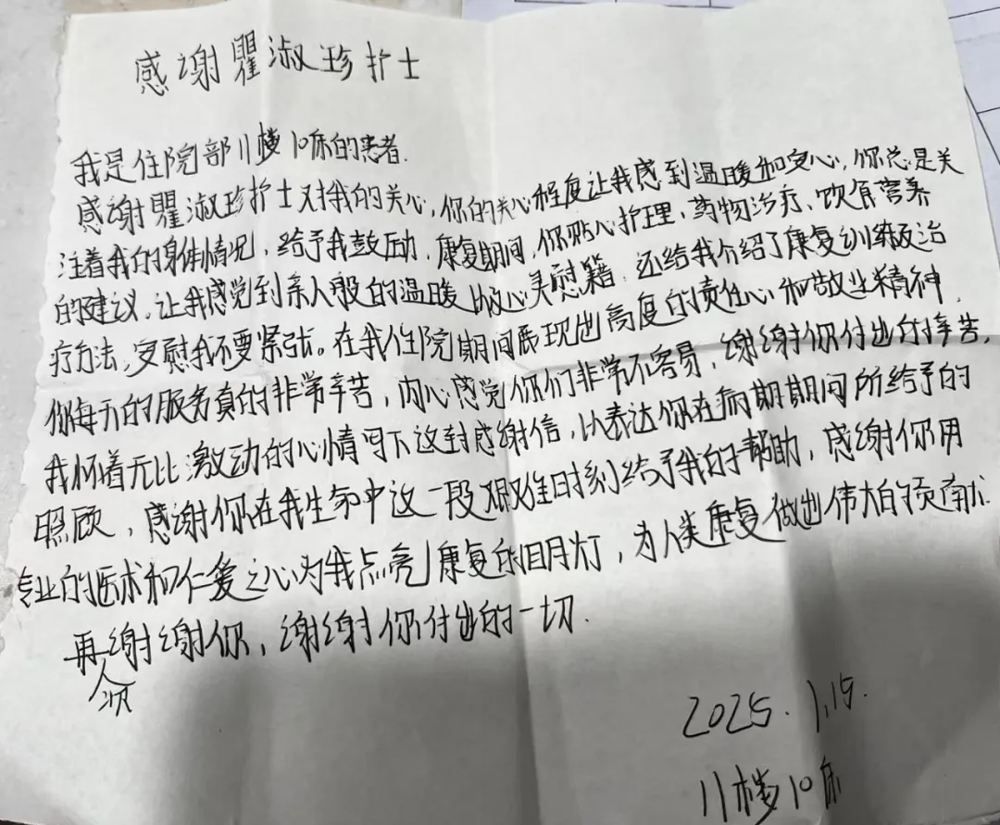 感谢瞿淑珍护士
我是住院部11楼10床的患者.
感谢瞿淑珍护士对我的关心,你的关心程度让我感到温暖和安心,你总是关
注着我的身体情况,给予我鼓励,康复期间,你贴心护理,药物治疗、饮食营养
的建议,让我感觉到亲人般的温暖 心灵慰籍.还给我介绍了康复训练及治
疗方法,安慰我不要紧张。在我住院期间展现出高度的责任心和敬业精神.
你每天的服务真的非常辛苦,内心感觉你们非常不容易,谢谢你付出的辛苦,
我怀着无比激动的心情写下这封感谢信,以表达你在病期期间所给予的
照顾,感谢你在我生命中这一段艰难时刻给予我的帮助,感谢你用
专业的医术和仁爱之心为我点亮了康复的明灯,为人类康复做出伟大的贡献.
再次谢谢你,谢谢你付出的一切.
2025.1.15.
11楼10床